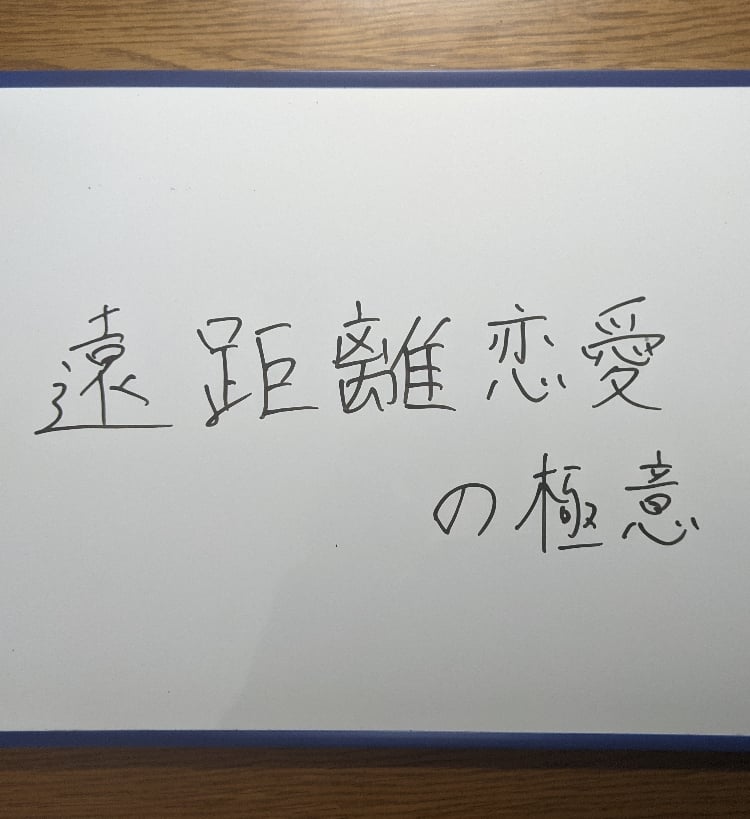 遠距離恋愛
の極意